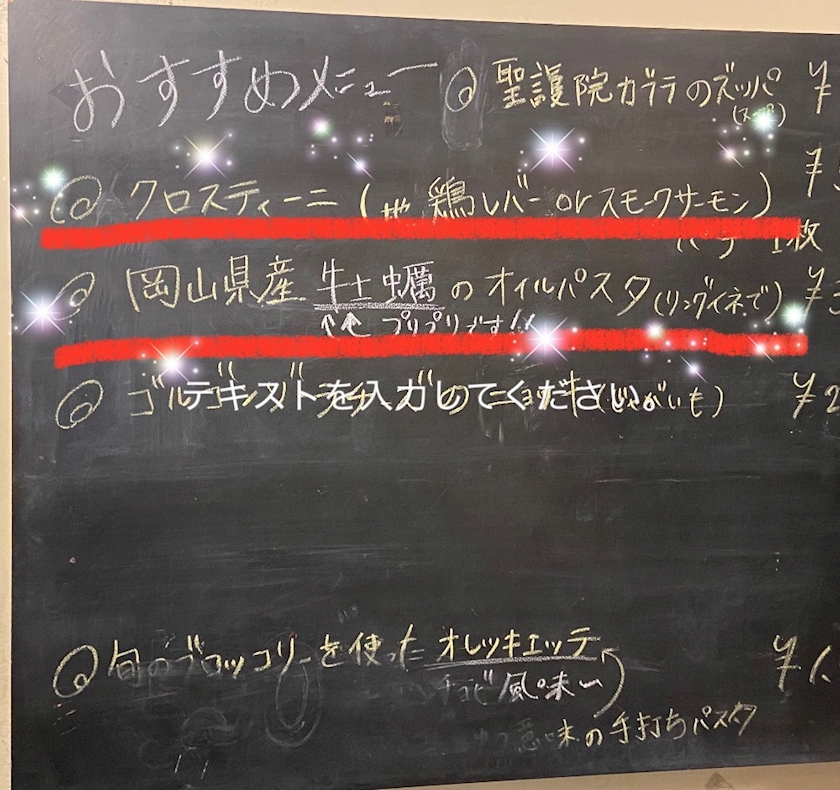 おすすめメニュー
◎ 聖護院カブラのズッパ ¥
(スープ)
¥
◎ クロスティーニ (地鶏レバー or スモークサーモン)
1枚
◎ 岡山県産 牡蠣のオイルパスタ (リングイネで) ¥
↑↑ プリプリです!!
◎ ゴルゴンゾーラチーズのニョッキ (じゃがいも) ¥2
テキストを入力してください。
◎ 旬のブロッコリーを使った オレッキエッテ ¥1.
風味〜
意味の手打ちパスタ